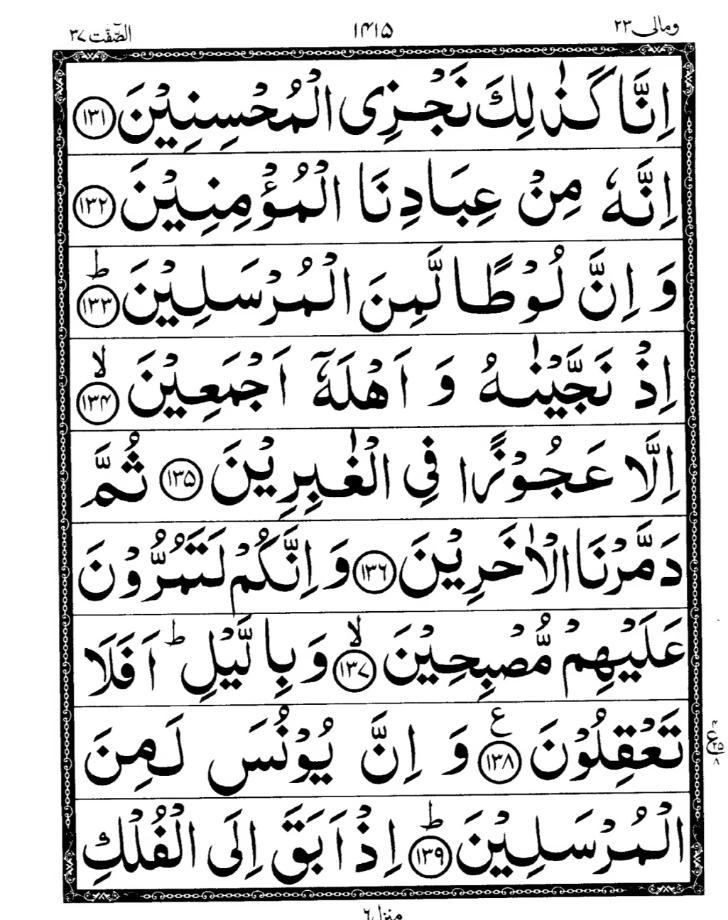 ومالی ۲۳ ۱۴۱۵ الصّٰفّٰت ۳۷
اِنَّا كَذٰلِكَ نَجْزِی الْمُحْسِنِیْنَ ۝۱۳۱
اِنَّهٗ مِنْ عِبَادِنَا الْمُؤْمِنِیْنَ ۝۱۳۲
وَ اِنَّ لُوْطًا لَّمِنَ الْمُرْسَلِیْنَ ؕ ۝۱۳۳
اِذْ نَجَّیْنٰهُ وَ اَهْلَهٗۤ اَجْمَعِیْنَ ۙ ۝۱۳۴
اِلَّا عَجُوْزًا فِی الْغٰبِرِیْنَ ۝۱۳۵ ثُمَّ
دَمَّرْنَا الْاٰخَرِیْنَ ۝۱۳۶ وَ اِنَّكُمْ لَتَمُرُّوْنَ
عَلَیْهِمْ مُّصْبِحِیْنَ ۙ ۝۱۳۷ وَ بِالَّیْلِ ؕ اَفَلَا
تَعْقِلُوْنَ ۠ ۝۱۳۸ ع وَ اِنَّ یُوْنُسَ لَمِنَ
الْمُرْسَلِیْنَ ؕ ۝۱۳۹ اِذْ اَبَقَ اِلَی الْفُلْكِ
منزل ۶